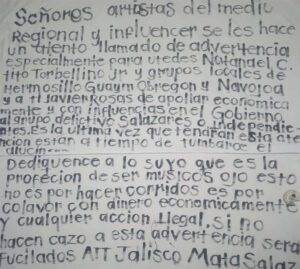 Señores artistas del medio
Regional y influencer se les hace
un atento llamado de advertencia
especialmente para utedes Natanael C.
tito Torbellino Jr y grupos locales de
Hermosillo Guaym Obregon y Navojoa
y a ti Javier Rosas de apollar economica
mente y con influencias en el Gobierno
al grupo delictivo Salazares o independie
ntes. Es la ultima vez que tendran esta ate
ncion estan a tiempo de tumbarce el
Dediquence a lo suyo que es la
profecion de ser musicos ojo esto
no es por hacer corridos es por
colavor con dinero economicamente
y cualquier accion Ilegal, si no
hacen cazo a esta advertencia sera
Fucilados ATT Jalisco Mata Salaz